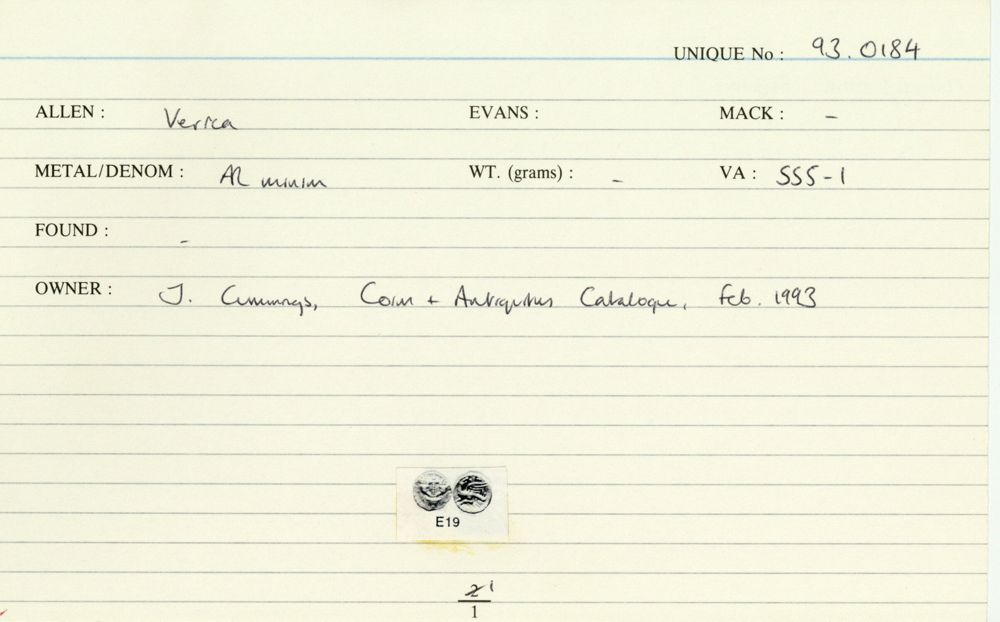 UNIQUE No : 93.0184
ALLEN : Verica EVANS : MACK : -
METAL/DENOM : AR minim WT. (grams) : - VA : 555-1
FOUND : -
OWNER : J. Cummings, Coin + Antiquities Catalogue, Feb. 1993
E19
2 1
1